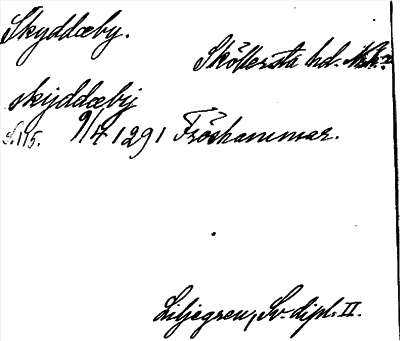 Skyddæby.
Sköllersta hd.
skyddæby
S. 115. 9/4 1291 Fröshammar.
Liljegren, Sv. dipl. II.